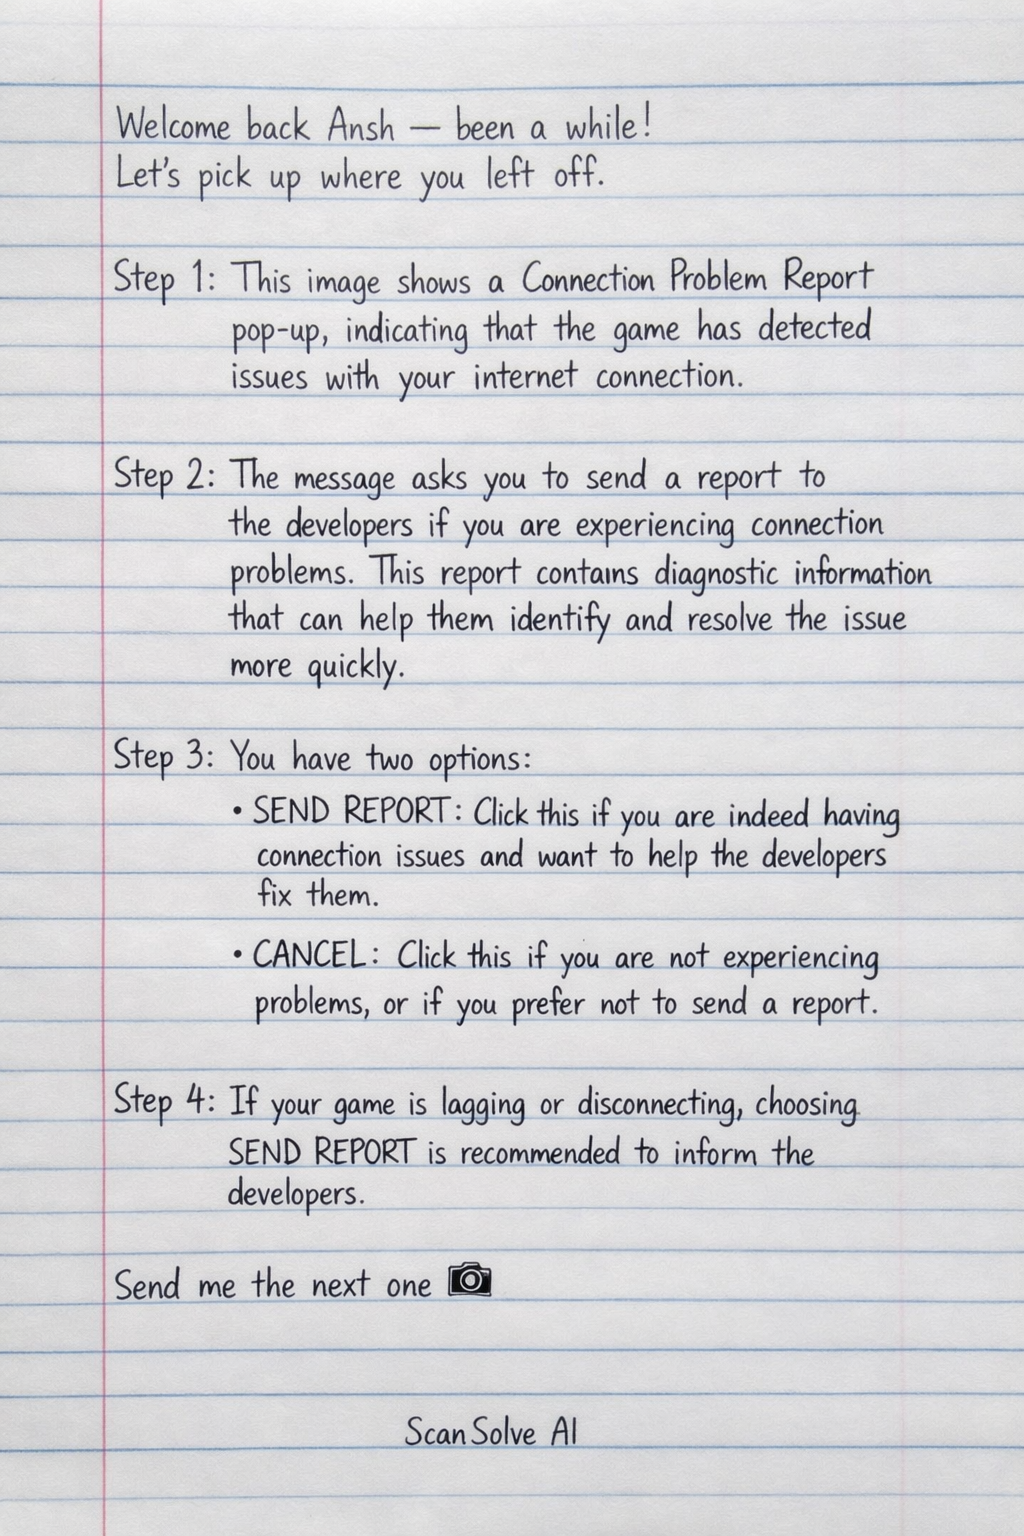 Welcome back Ansh — been a while!
Let's pick up where you left off.
Step 1: This image shows a Connection Problem Report
pop-up, indicating that the game has detected
issues with your internet connection.
Step 2: The message asks you to send a report to
the developers if you are experiencing connection
problems. This report contains diagnostic information
that can help them identify and resolve the issue
more quickly.
Step 3: You have two options:
• SEND REPORT: Click this if you are indeed having
connection issues and want to help the developers
fix them.
• CANCEL: Click this if you are not experiencing
problems, or if you prefer not to send a report.
Step 4: If your game is lagging or disconnecting, choosing
SEND REPORT is recommended to inform the
developers.
Send me the next one 📷
ScanSolve AI